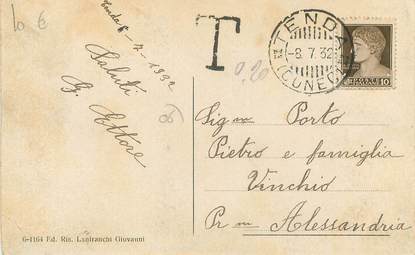 10 €
Tenda 8-7-1932
Saluti
G. Ettore
T
TENDA
-8.7.32
(CUNEO)
10
0,20
Sig m Porto
Pietro e famiglia
Vinchio
Pr m Alessandria
6-1164 Ed. Ris. Lanfranchi Giovanni